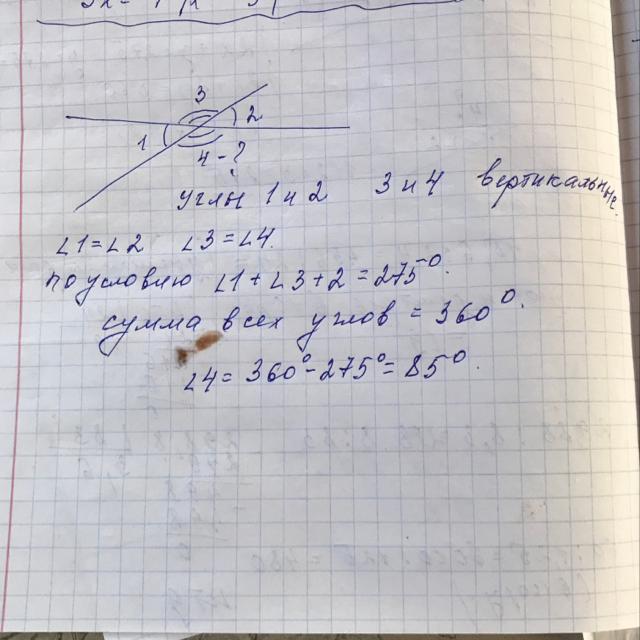 3
2
1
4-?
углы 1 и 2 3 и 4 вертикальные.
∠1=∠2 ∠3=∠4.
по условию ∠1+∠3+2=275°.
сумма всех углов = 360°.
∠4= 360°-275°=85°.